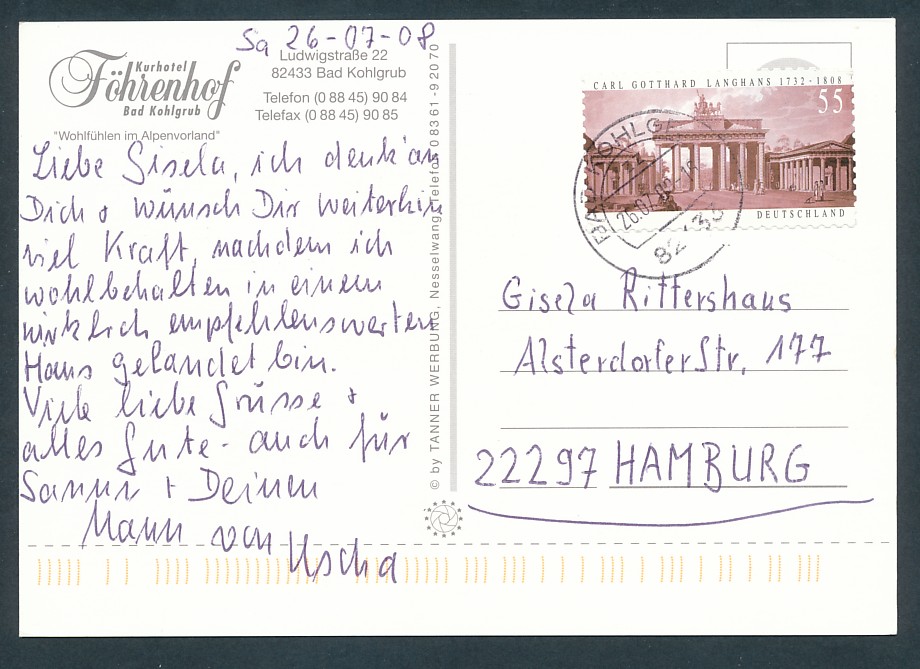 Sa 26-07-08
Kurhotel
Föhrenhof
Bad Kohlgrub
"Wohlfühlen im Alpenvorland"
Ludwigstraße 22
82433 Bad Kohlgrub
Telefon (0 88 45) 90 84
Telefax (0 88 45) 90 85
Liebe Gisela, ich denk an
Dich & wünsch Dir weiterhin
viel Kraft, nachdem ich
wohlbehalten in einem
wirklich empfehlenswerten
Haus gelandet bin.
Viele liebe Grüsse &
alles Gute - auch für
+ Deinen
Mann von
Uscha
© by TANNER WERBUNG, Nesselwang, Telefon 0 83 61-9 20 70
CARL GOTTHARD LANGHANS 1732-1808
55
DEUTSCHLAND
BAD KOHLG
26.07.08
Gisela Rittershaus
Alsterdorfer Str. 177
22297 HAMBURG